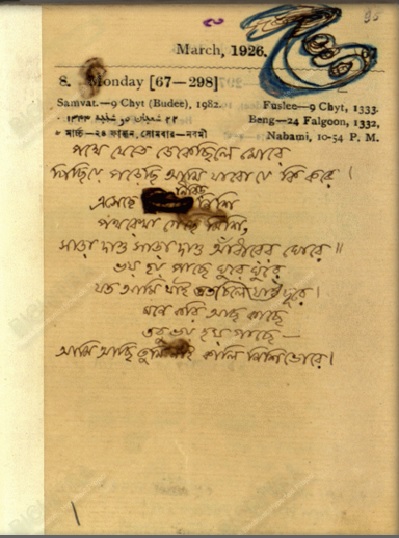 90
March, 1926.
8. Monday [67—298]
Samvat.—9 Chyt (Budee), 1982.
Fuslee—9 Chyt, 1333.
Beng—24 Falgoon, 1332,
মার্চ—২৪ ফাল্গুন, সোমবার—নবমী
Nabami, 10-54 P. M.
পথে যেতে ডেকেছিলে মোরে
পিছিয়ে পড়েছি আমি যাবো যে কি করে।
নিবিড়
এসেছে নিশি
পথরেখা গেছে মিশি,
সাড়া দাও সাড়া দাও আঁধারের ঘোরে॥
ভয় হয় পাছে ঘুরে ঘুরে
যত আমি যাই তত চলে যাই দূরে।
মনে করি আছ কাছে
তবু ভয় হয় পাছে—
আমি আছি তুমি নাই কালি নিশিভোরে।